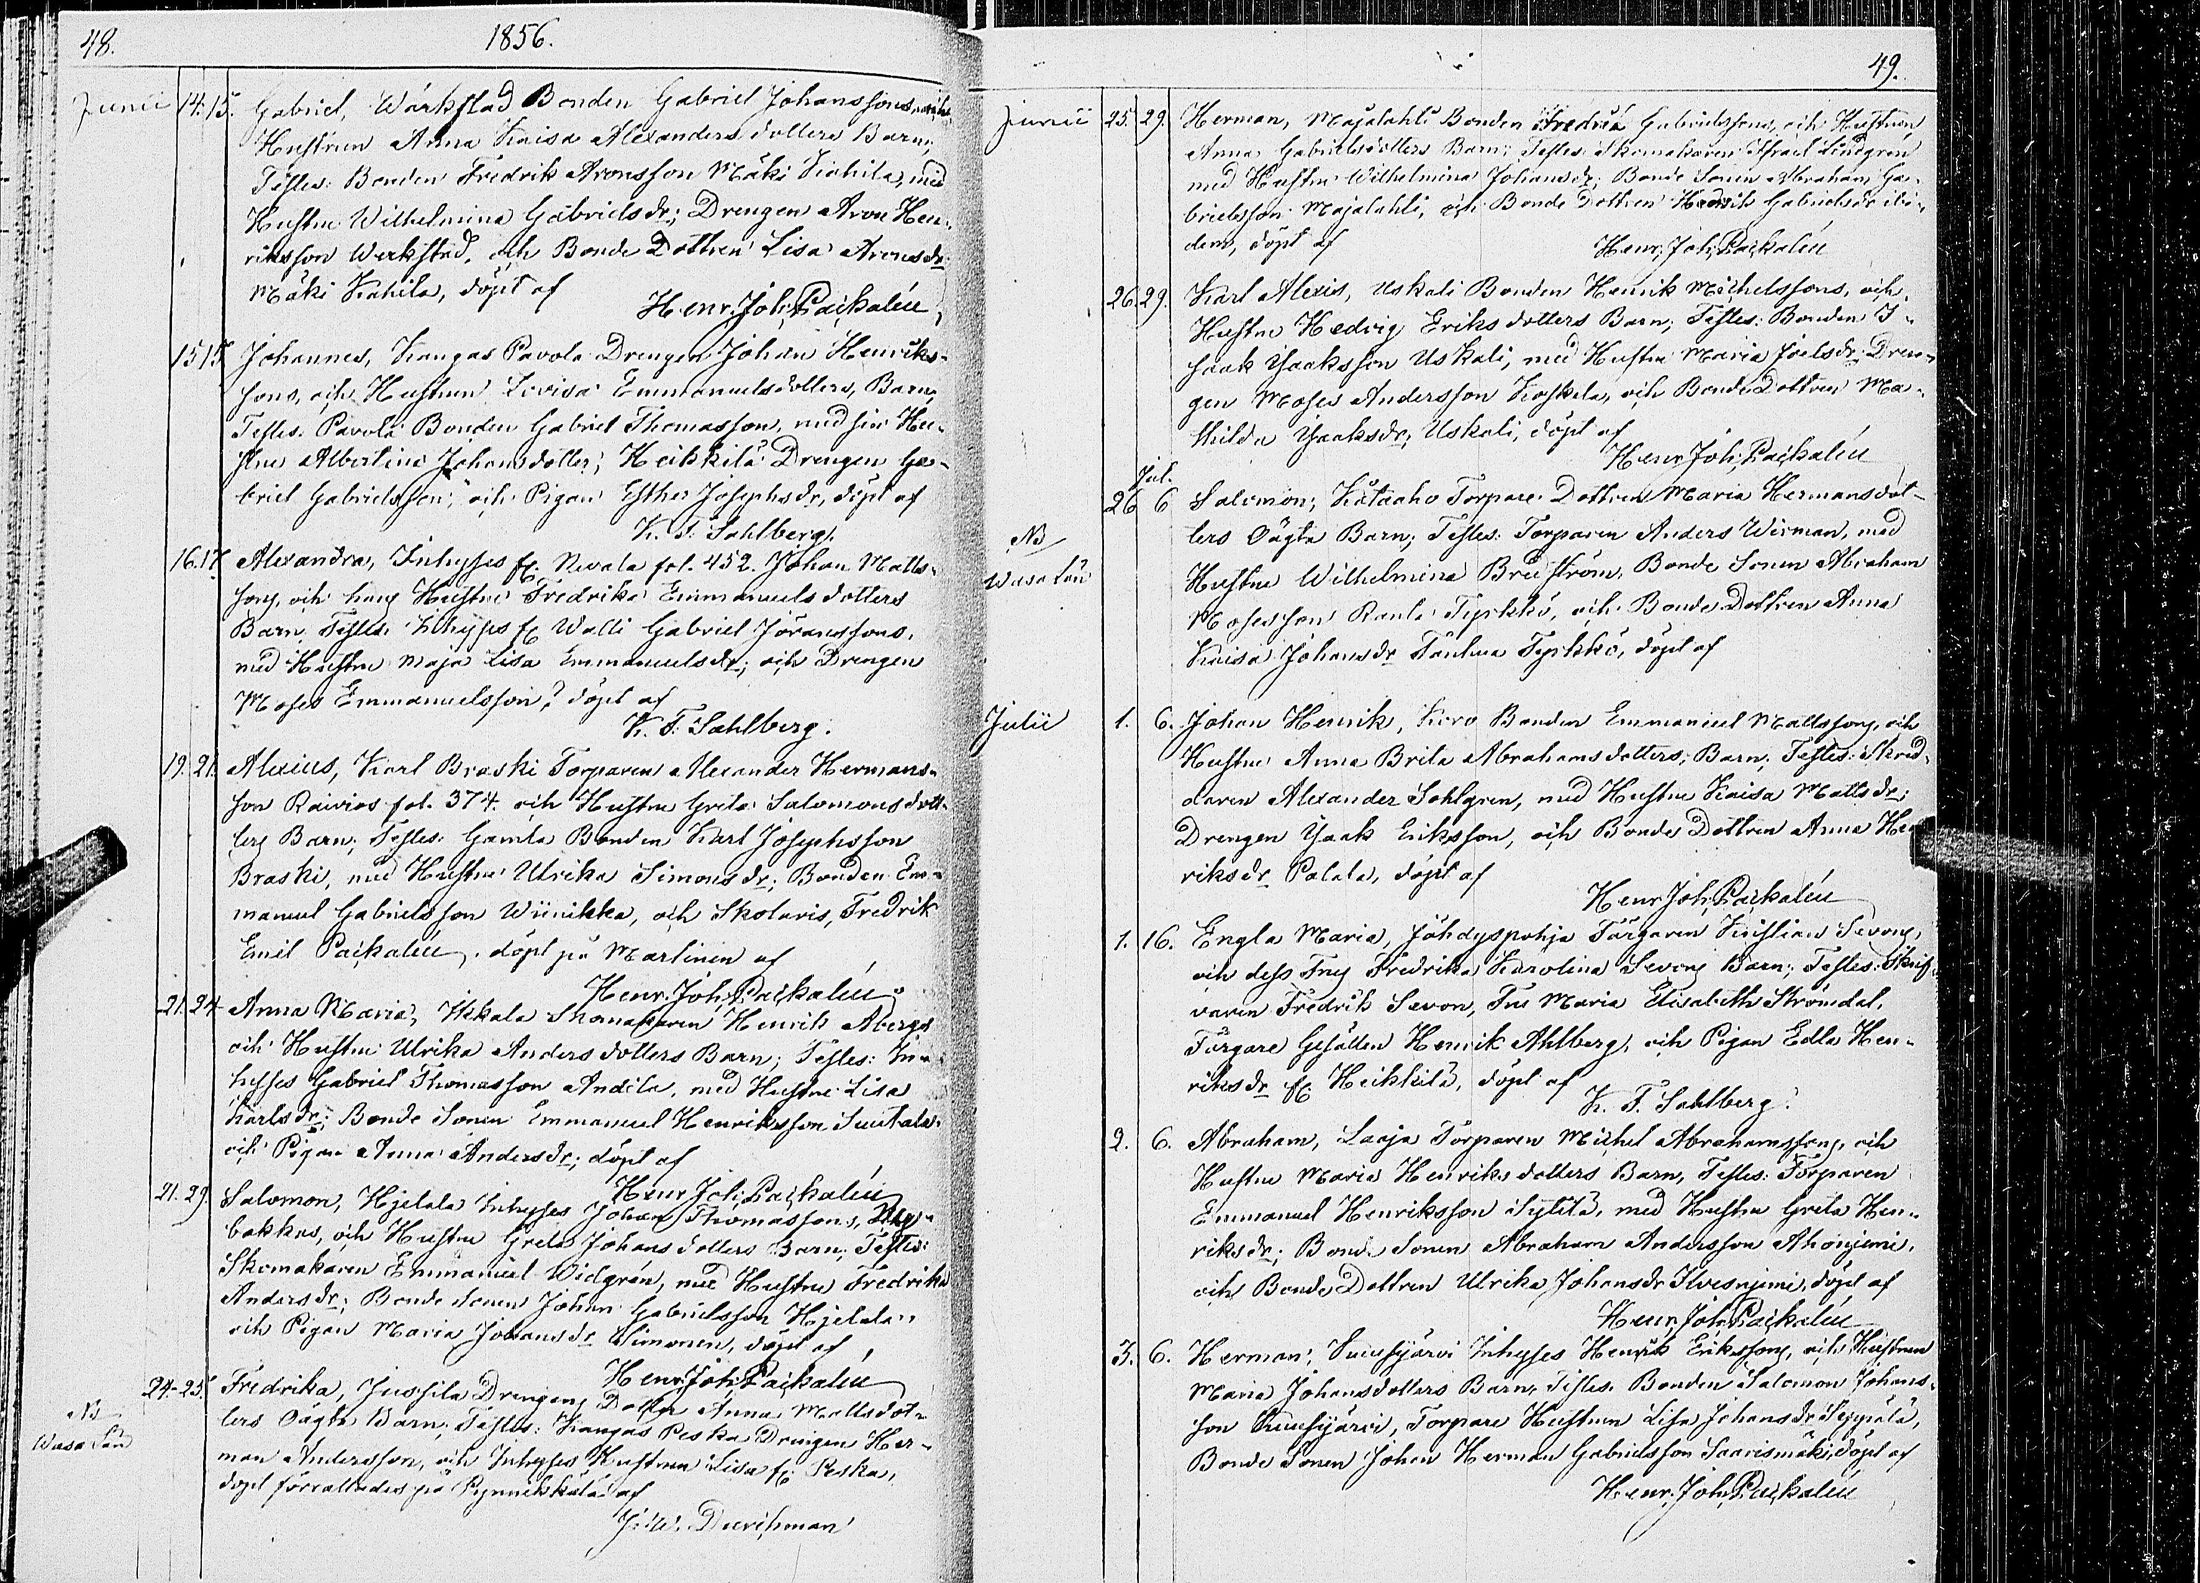 48.
1856.
Junii 14. 15. Gabriel, Wärkstad Bonden Gabriel Johanssons, och
Hustrun Anna Kaisa Alexanders dotters Barn;
Testes: Bonden Fredrik Aronsson Mäki Kahila, med
Hustru Wilhelmina Gabrielsdr; Drengen Aron Hen-
riksson Werkstad, och Bonde Dottren Lisa Aronsdr
Mäki Kahila, döpt af
Henr. Joh. Paçkalén
15 15 Johannes, Kangas Pavola Drengen Johan Henriks-
sons, och Hustrun Lovisa Emmanuelsdotters, Barn,
Testes: Pavola Bonden Gabriel Thomasson, med sin Hu-
stru Albertina Johansdotter; Heikkilä Drengen Ga-
briel Gabrielsson, och Pigan Esther Josephsdr, döpt af
K. F. Sahlberg.
16. 17. Alexandra, Inhyses fr Nevala fol. 452. Johan Matts-
sons, och hans Hustru Fredrika Emmanuels dotters
Barn, Testes: Inhyses fr Walli Gabriel Jöranssons,
med Hustru Maja Lisa Emmanuelsdr; och Drengen
Moses Emmanuelsson, döpt af
K. F. Sahlberg.
19. 21. Alexius, Karl Braski Torparen Alexander Hermans-
son Raivios fol. 374. och Hustru Greta Salomons dott-
ers Barn; Testes: Gamla Bonden Karl Josephsson
Braski, med Hustru Ulrika Simonsdr; Bonden Em-
manuel Gabrielsson Wiinikka, och Skolaris, Fredrik
Emil Paçkalén, döpt på Marlinen af
Henr. Joh. Paçkalén
21. 24 Anna Maria, Ikkala Skomakaren Henrik Åbergs
och Hustru Ulrika Anders dotters Barn; Testes: In-
hyses Gabriel Thomasson Andila, med Hustru Lisa
Karlsdr; Bonde Sonen Emmanuel Henriksson Suutala
och Pigan Anna Andersdr; döpt af
Henr. Joh. Paçkalén
21. 29. Salomon, Hjelala Inhyses Johan Thomassons,
backas, och Hustru Greta Johans dotters Barn; Testes:
Skomakaren Emmanuel Widgrén, med Hustru Fredrika
Andersdr; Bonde Sonen Johan Gabrielsson Hjelala,
och Pigan Maria Johansdr Simonen, döpt af
Henr. Joh. Paçkalén
24-25. Fredrika, Jussila Drengens Dotter Anna Mattsdot-
NB
Wasa Län
ters Oägta Barn; Testes: Kangas Peska Drengen Her-
man Andersson, och Inhyses Hustrun Lisa fr Peska,
döpt förrättades på Pynnikkälä af
J. W. Durchman
49.
Junii 25. 29. Herman, Majalahti Bonden Fredrik Gabrielssons, och Hustrun
Anna Gabrielsdotters Barn; Testes: Skomakaren Israel Lindgren
med Hustru Wilhelmina Johansdr; Bonde Sonen Abraham Ga-
brielsson Majalahti, och Bonde Dottren Hedvik Gabrielsdr ibi-
dem, döpt af
Henr. Joh. Paçkalén
26. 29. Karl Alexis, Uskali Bonden Henrik Michelssons, och
Hustru Hedvig Eriks dotters Barn; Testes: Bonden I-
saak Ysaksson Uskali, med Hustru Maria Joelsdr; Dren-
gen Moses Andersson Koskela, och Bonde Dottren Ma-
thilda Ysaksdr, Uskali, döpt af
Henr. Joh. Paçkalén
Jul.
26 6 Salomon; Kätäaho Torpare Dottren Maria Hermansdot-
NB
Wasa Län
ters Oägta Barn; Testes: Torparen Anders Wirman, med
Hustru Wilhelmina Brudström, Bonde Sonen Abraham
Mosesson Ranta Tyrkkö, och Bonde Dottren Anna
Kaisa Johansdr Tanhua Tyrkkö, döpt af
Julii 1. 6. Johan Henrik, Koro Bonden Emmanuel Mattssons, och
Hustru Anna Brita Abrahamsdotters; Barn; Testes: Skred-
daren Alexander Sohlgren, med Hustru Kaisa Mattsdr;
Drengen Ysak Eriksson, och Bonde Dottren Anna Hen
riksdr Palala, döpt af
Henr Joh. Paçkalén
1. 16. Engla Maria, Jöhdyspohja Färgaren Kristian Sevons,
och dess Frus Fredrika Karolina Sevons Barn; Testes: Skrif-
varen Fredrik Sevon, Fru Maria Elisabeth Strömdal,
Färgare Gesällen Henrik Ahlberg, och Pigan Edla Hen-
riksdr fr Heikkilä, döpt af
K. F. Sahlberg.
2. 6. Abraham, Laaja Torparen Michel Abrahamssons, och
Hustru Maria Henriks dotters Barn, Testes: Torparen
Emmanuel Henriksson Sytelä, med Hustru Greta Hen-
riksdr; Bonde Sonen Abraham Andersson Ahonjemi,
och Bonde Dottren Ulrika Johansdr Ilvesnjemi, döpt af
Henr. Joh. Paçkalén
3. 6. Herman, Suusijärvi Inhyses Henrik Erikssons, och Hustrun
Maria Johansdotters Barn, Testes: Bonden Salomon Johans-
son Suusijärvi, Torpare Hustrun Lisa Johansdr Seppälä,
Bonde Sonen Johan Herman Gabrielsson Saarismäki, döpt af
Henr. Joh. Paçkalén